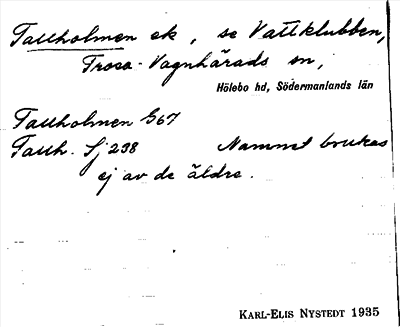 Tallholmen ek, se Vattklubben,
Trosa-Vagnhärads sn,
Hölebo hd, Södermanlands län
Tallholmen G67
Tallh. Sj 238 Namnet brukas
ej av de äldre.
KARL-ELIS NYSTEDT 1935